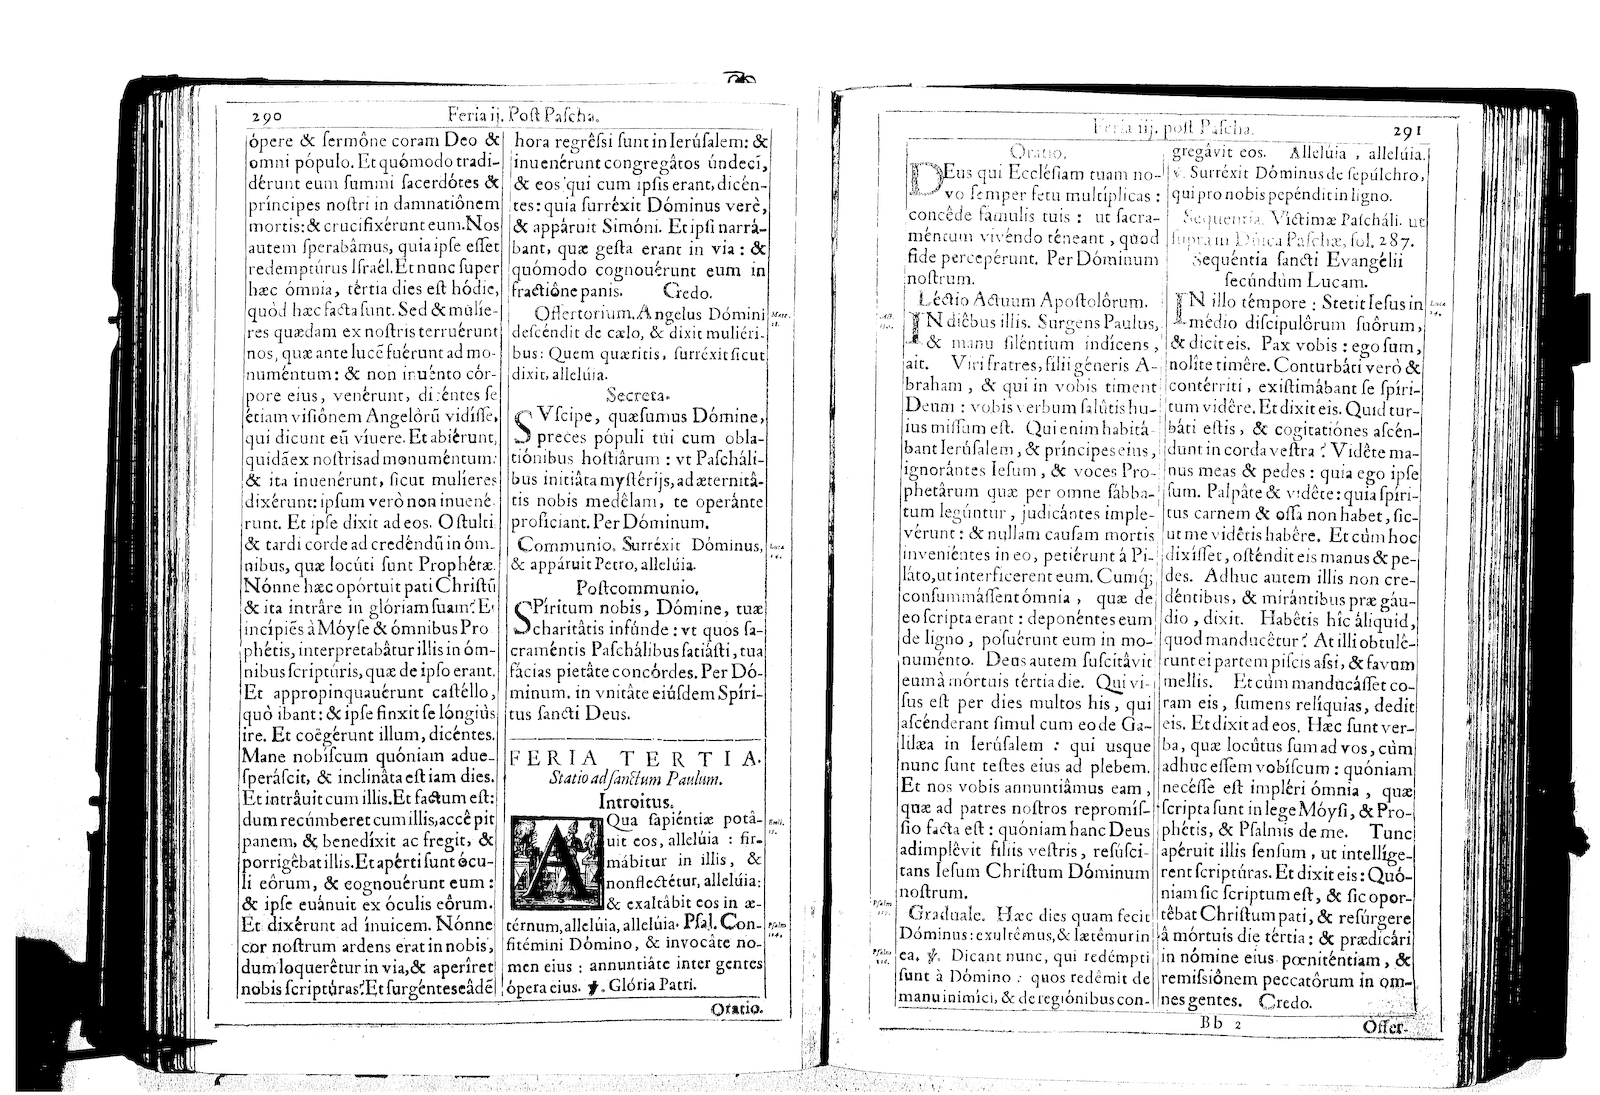 290
Feria ij. Poſt Paſcha.
ópere & ſermône coram Deo &
omni pópulo. Et quómodo tradi-
dérunt eum ſummi ſacerdótes &
príncipes noſtri in damnatiônem
mortis: & crucifixérunt eum. Nos
autem ſperabâmus, quia ipſe eſſet
redemptúrus Iſraél. Et nunc ſuper
hæc ómnia, tértia dies eſt hódie,
quòd hæc facta ſunt. Sed & mulíe-
res quædam ex noſtris terruérunt
nos, quæ ante lucẽ fuérunt ad mo-
numéntum: & non inuénto cór-
pore eius, venérunt, dicéntes ſe
étiam viſiônem Angelôrũ vidíſſe,
qui dicunt eũ víuere. Et abiérunt,
quidã ex noſtris ad monuméntum:
& ita inuenérunt, ſicut mulíeres
dixérunt: ipſum verò non inuené-
runt. Et ipſe dixit ad eos. O ſtulti
& tardi corde ad credéndũ in óm.
nibus, quæ locúti ſunt Prophétæ.
Nónne hæc opórtuit pati Chriſtũ
& ita intrâre in glóriam ſuam? Et
incípiẽs à Móyſe & ómnibus Pro
phétis, interpretabâtur illis in óm-
nibus ſcriptúris, quæ de ipſo erant.
Et appropinquauérunt caſtéllo,
quò ibant: & ipſe finxit ſe lóngiùs
ire. Et coëgérunt illum, dicéntes.
Mane nobíſcum quóniam adue-
ſperáſcit, & inclinâta eſt iam dies.
Et intrâuit cum illis. Et factum eſt:
dum recúmberet cum illis, accêpit
panem, & benedíxit ac fregit, &
porrigêbat illis. Et apérti ſunt ócu-
li eôrum, & cognouérunt eum:
& ipſe euánuit ex óculis eôrum.
Et dixérunt ad ínuicem. Nónne
cor noſtrum ardens erat in nobis,
dum loquerêtur in via, & aperíret
nobis ſcriptúras? Et ſurgéntes eâdẽ
hora regréſſi ſunt in Ierúſalem: &
inuenérunt congregâtos úndecĩ,
& eos qui cum ipſis erant, dicén-
tes: quia ſurréxit Dóminus verè,
& appáruit Simóni. Et ipſi narrâ-
bant, quæ geſta erant in via: &
quómodo cognouérunt eum in
fractiône panis. Credo.
Offertorium. Angelus Dómini
deſcéndit de cælo, & dixit muliéri-
bus: Quem quæritis, ſurréxit ſicut
dixit, allelúia.
Secreta.
SVſcipe, quæſumus Dómine,
preces pópuli tui cum obla-
tiónibus hoſtiârum: vt Paſcháli-
bus initiâta myſtérijs, ad æternitâ-
tis nobis medêlam, te operánte
proficiant. Per Dóminum.
Communio. Surréxit Dóminus,
& appáruit Petro, allelúia.
Poſtcommunio.
SPíritum nobis, Dómine, tuæ
charitâtis infúnde: vt quos ſa-
craméntis Paſchálibus ſatiáſti, tua
fácias pietâte concórdes. Per Dó-
minum. in vnitâte eiúſdem Spíri-
tus ſancti Deus.
FERIA TERTIA.
Statio ad ſanctum Paulum.
Introitus.
AQua ſapiéntiæ potâ-
uit eos, allelúia: fir-
mábitur in illis, &
non flectétur, allelúia:
& exaltâbit eos in æ-
térnum, allelúia, allelúia. Pſal. Con-
fitémini Dómino, & invocâte no-
men eius: annuntiâte inter gentes
ópera eius. ℣. Glória Patri.
Oratio.
Feria iij. poſt Paſcha.
291
Oratio.
DEus qui Eccléſiam tuam no-
vo ſemper fetu multíplicas:
concêde fámulis tuis: ut ſacra-
méntum vivéndo téneant, quod
fide percepérunt. Per Dóminum
noſtrum.
Léctio Actuum Apoſtolôrum.
IN diêbus illis. Surgens Paulus,
& manu ſiléntium indícens,
ait. Viri fratres, filii géneris A-
braham, & qui in vobis timent
Deum: vobis verbum ſalûtis hu-
ius miſſum eſt. Qui enim habitá-
bant Ierúſalem, & príncipes eius,
ignorántes Ieſum, & voces Pro-
phetârum quæ per omne ſábba-
tum legúntur, judicántes imple-
vérunt: & nullam cauſam mortis
inveniéntes in eo, petiérunt á Pi-
láto, ut interficerent eum. Cumq;
conſummáſſent ómnia, quæ de
eo ſcripta erant: deponéntes eum
de ligno, poſuérunt eum in mo-
numénto. Deus autem ſuſcitâvit
eum à mórtuis tértia die. Qui vi-
ſus eſt per dies multos his, qui
aſcénderant ſimul cum eo de Ga-
lilæa in Ierúſalem: qui usque
nunc ſunt teſtes eius ad plebem.
Et nos vobis annuntiâmus eam,
quæ ad patres noſtros repromíſ-
ſio facta eſt: quóniam hanc Deus
adimplêvit filiis veſtris, reſúſci-
tans Ieſum Chriſtum Dóminum
noſtrum.
Graduale. Hæc dies quam fecit
Dóminus: exultêmus, & lætêmur in
ea. ℣. Dicant nunc, qui redémpti
ſunt à Dómino: quos redêmit de
manu inimíci, & de regiónibus con-
gregâvit eos. Allelúia, allelúia.
℣. Surréxit Dóminus de ſepúlchro,
qui pro nobis pepéndit in ligno.
Sequentia. Víctimæ Paſcháli. ut
ſupra in Dñica Paſchæ, fol. 287.
Sequéntia ſancti Evangélii
ſecúndùm Lucam.
IN illo témpore: Stetit Ieſus in
médio diſcipulôrum ſuôrum,
& dicit eis. Pax vobis: ego ſum,
nolîte timêre. Conturbáti verò &
contérriti, exiſtimábant ſe ſpíri-
tum vidêre. Et dixit eis. Quid tur-
báti eſtis, & cogitatiónes aſcén-
dunt in corda veſtra? Vidête ma-
nus meas & pedes: quia ego ipſe
ſum. Palpâte & vidête: quia ſpíri-
tus carnem & oſſa non habet, ſic-
ut me vidêtis habêre. Et cùm hoc
dixíſſet, oſténdit eis manus & pe-
des. Adhuc autem illis non cre-
déntibus, & mirántibus præ gáu-
dio, dixit. Habêtis hîc áliquid,
quod manducêtur? At illi obtulé-
runt ei partem piſcis aſsi, & favum
mellis. Et cùm manducáſſet co-
ram eis, ſumens relíquias, dedit
eis. Et dixit ad eos. Hæc ſunt ver-
ba, quæ locûtus ſum ad vos, cùm
adhuc eſſem vobíſcum: quóniam
necéſſe eſt impléri ómnia, quæ
ſcripta ſunt in lege Móyſi, & Pro-
phétis, & Pſalmis de me. Tunc
apéruit illis ſenſum, ut intellíge-
rent ſcriptúras. Et dixit eis: Quó-
niam ſic ſcriptum eſt, & ſic opor-
têbat Chriſtum pati, & reſúrgere
â mórtuis die tértia: & prædicári
in nómine eius pœniténtiam, &
remiſsiônem peccatôrum in om-
nes gentes. Credo.
Bb 2
Offer-